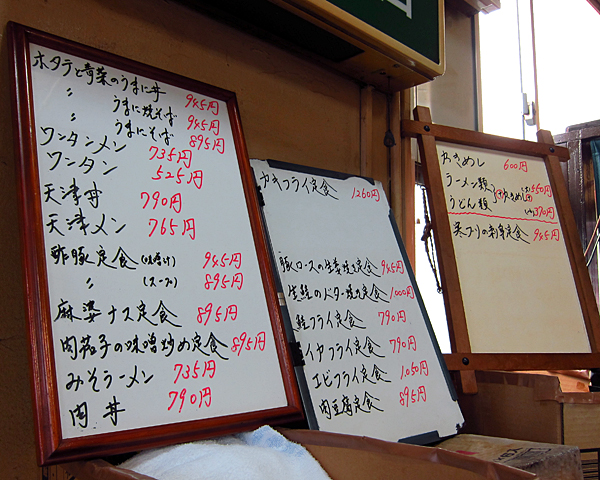 ホタテと青菜のうまに丼 945円
〃 うまに焼そば 945円
〃 うまにそば 895円
ワンタンメン 735円
ワンタン 525円
天津丼 790円
天津メン 765円
酢豚定食 945円
〃 895円
麻婆ナス定食 895円
肉茄子の味噌炒め定食 895円
みそラーメン 735円
肉丼 790円
カキフライ定食 1260円
豚ロースの生姜焼き定食 945円
生鮭のバター焼き定食 1,000円
鮭フライ定食 790円
イカフライ定食 790円
エビフライ定食 1,050円
肉豆腐定食 895円
かきめし 600円
ラーメン類
うどん類
定食 945円